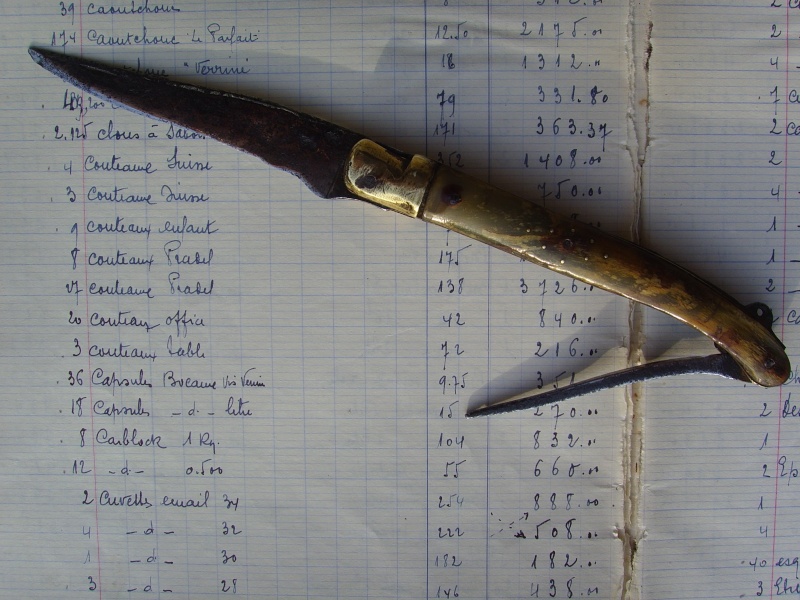 39 caoutchouc
174 Caoutchouc Le Parfait 12.50 2175.00 2
18 1312.00 4
79 331.80 7
2.125 clous à 171 363.37 2
4 Couteaux Suisse 352 1408.00 2
3 couteaux Suisse 750.00 4
9 couteaux enfant 1
8 couteaux Pradel 175 1
27 couteaux Pradel 138 3726.00 2
20 couteaux office 42 840.00
3 couteaux table 72 216.00
36 Capsules 9.75 351
18 Capsules -d- litre 15 270.00 2
8 Carblock 1 Kg. 104 832.00 1
12 -d- 0.500 55 660.00 2
2 Cuvettes email 34 254 888.00 1
4 -d- 32 222 508.00 4
1 -d- 30 182 182.00 40
3 -d- 28 146 438.00 3